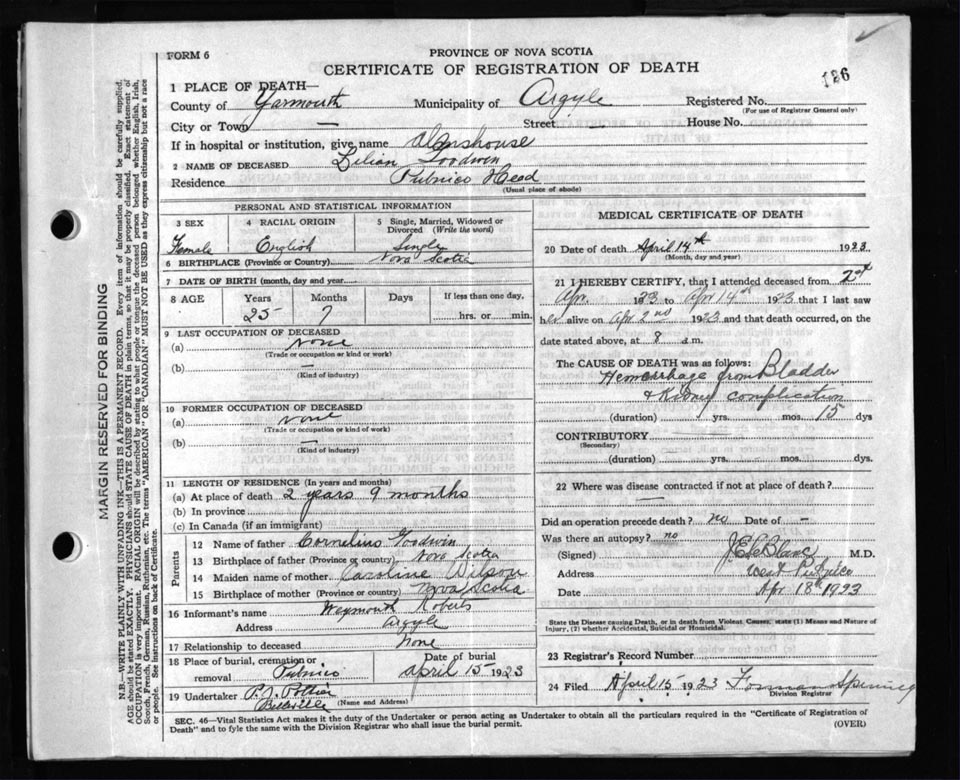 FORM 6
PROVINCE OF NOVA SCOTIA
CERTIFICATE OF REGISTRATION OF DEATH
186
1 PLACE OF DEATH—
County of Yarmouth Municipality of Argyle Registered No.
(For use of Registrar General only)
City or Town — Street — House No.
If in hospital or institution, give name Almshouse
2 NAME OF DECEASED Lilian Goodwin
Residence Pubnico Head
(Usual place of abode)
PERSONAL AND STATISTICAL INFORMATION
3 SEX Female
4 RACIAL ORIGIN English
5 Single, Married, Widowed or Divorced (Write the word) Single
6 BIRTHPLACE (Province or Country) Nova Scotia
7 DATE OF BIRTH (month, day and year)
8 AGE Years Months Days If less than one day,
25 7 hrs. or min.
9 LAST OCCUPATION OF DECEASED
(a) None
(Trade or occupation or kind or work)
(b) —
(Kind of industry)
10 FORMER OCCUPATION OF DECEASED
(a) None
(Trade or occupation or kind of work)
(b) —
(Kind of industry)
11 LENGTH OF RESIDENCE (In years and months)
(a) At place of death 2 years 9 months
(b) In province
(c) In Canada (if an immigrant)
Parents
12 Name of father Cornelius Goodwin
13 Birthplace of father (Province or Country) Nova Scotia
14 Maiden name of mother Caroline Wilson
15 Birthplace of mother (Province or country) Nova Scotia
16 Informant's name Weymouth Roberts
Address Argyle
17 Relationship to deceased None
18 Place of burial, cremation or removal Pubnico
Date of burial April 15 1923
19 Undertaker P. J. Pottier
Belleville
(Name and Address)
MEDICAL CERTIFICATE OF DEATH
20 Date of death April 14th 1923
(Month, day and year)
21 I HEREBY CERTIFY, that I attended deceased from 2nd
Apr. 1923 to Apr 14th 1923 that I last saw
her alive on Apr 2nd 1923 and that death occurred, on the
date stated above, at 8 a m.
The CAUSE OF DEATH was as follows:
Hemorrhage from Bladder
& Kidney complication
(duration) yrs. mos. 15 dys
CONTRIBUTORY
(Secondary)
(duration) yrs. mos. dys.
22 Where was disease contracted if not at place of death?
—
Did an operation precede death? no Date of –
Was there an autopsy? no
(Signed) J E LeBlanc M.D.
Address West Pubnico
Date Apr 18th 1923
State the Disease causing Death, or in death from Violent Causes, state (1) Means and Nature of
Injury, (2) whether Accidental, Suicidal or Homicidal.
23 Registrar's Record Number
24 Filed April 15 1923 Forman
Division Registrar
SEC. 46—Vital Statistics Act makes it the duty of the Undertaker or person acting as Undertaker to obtain all the particulars required in the "Certificate of Registration of
Death" and to fyle the same with the Division Registrar who shall issue the burial permit.
(OVER)
MARGIN RESERVED FOR BINDING
N.B.—WRITE PLAINLY WITH UNFADING INK—THIS IS A PERMANENT RECORD. Every item of information should be carefully supplied.
AGE should be stated EXACTLY. PHYSICIANS should STATE CAUSE OF DEATH in plain terms, so that it may be properly classified. Exact statement of
OCCUPATION is very important. RACIAL ORIGIN will be described by stating to what people or tongue the deceased person belonged whether English, Irish,
Scotch, French, German, Russian, Ruthenian, etc. The terms "AMERICAN" OR "CANADIAN" MUST NOT BE USED as they express citizenship but not a race
or people. See instructions on back of Certificate.